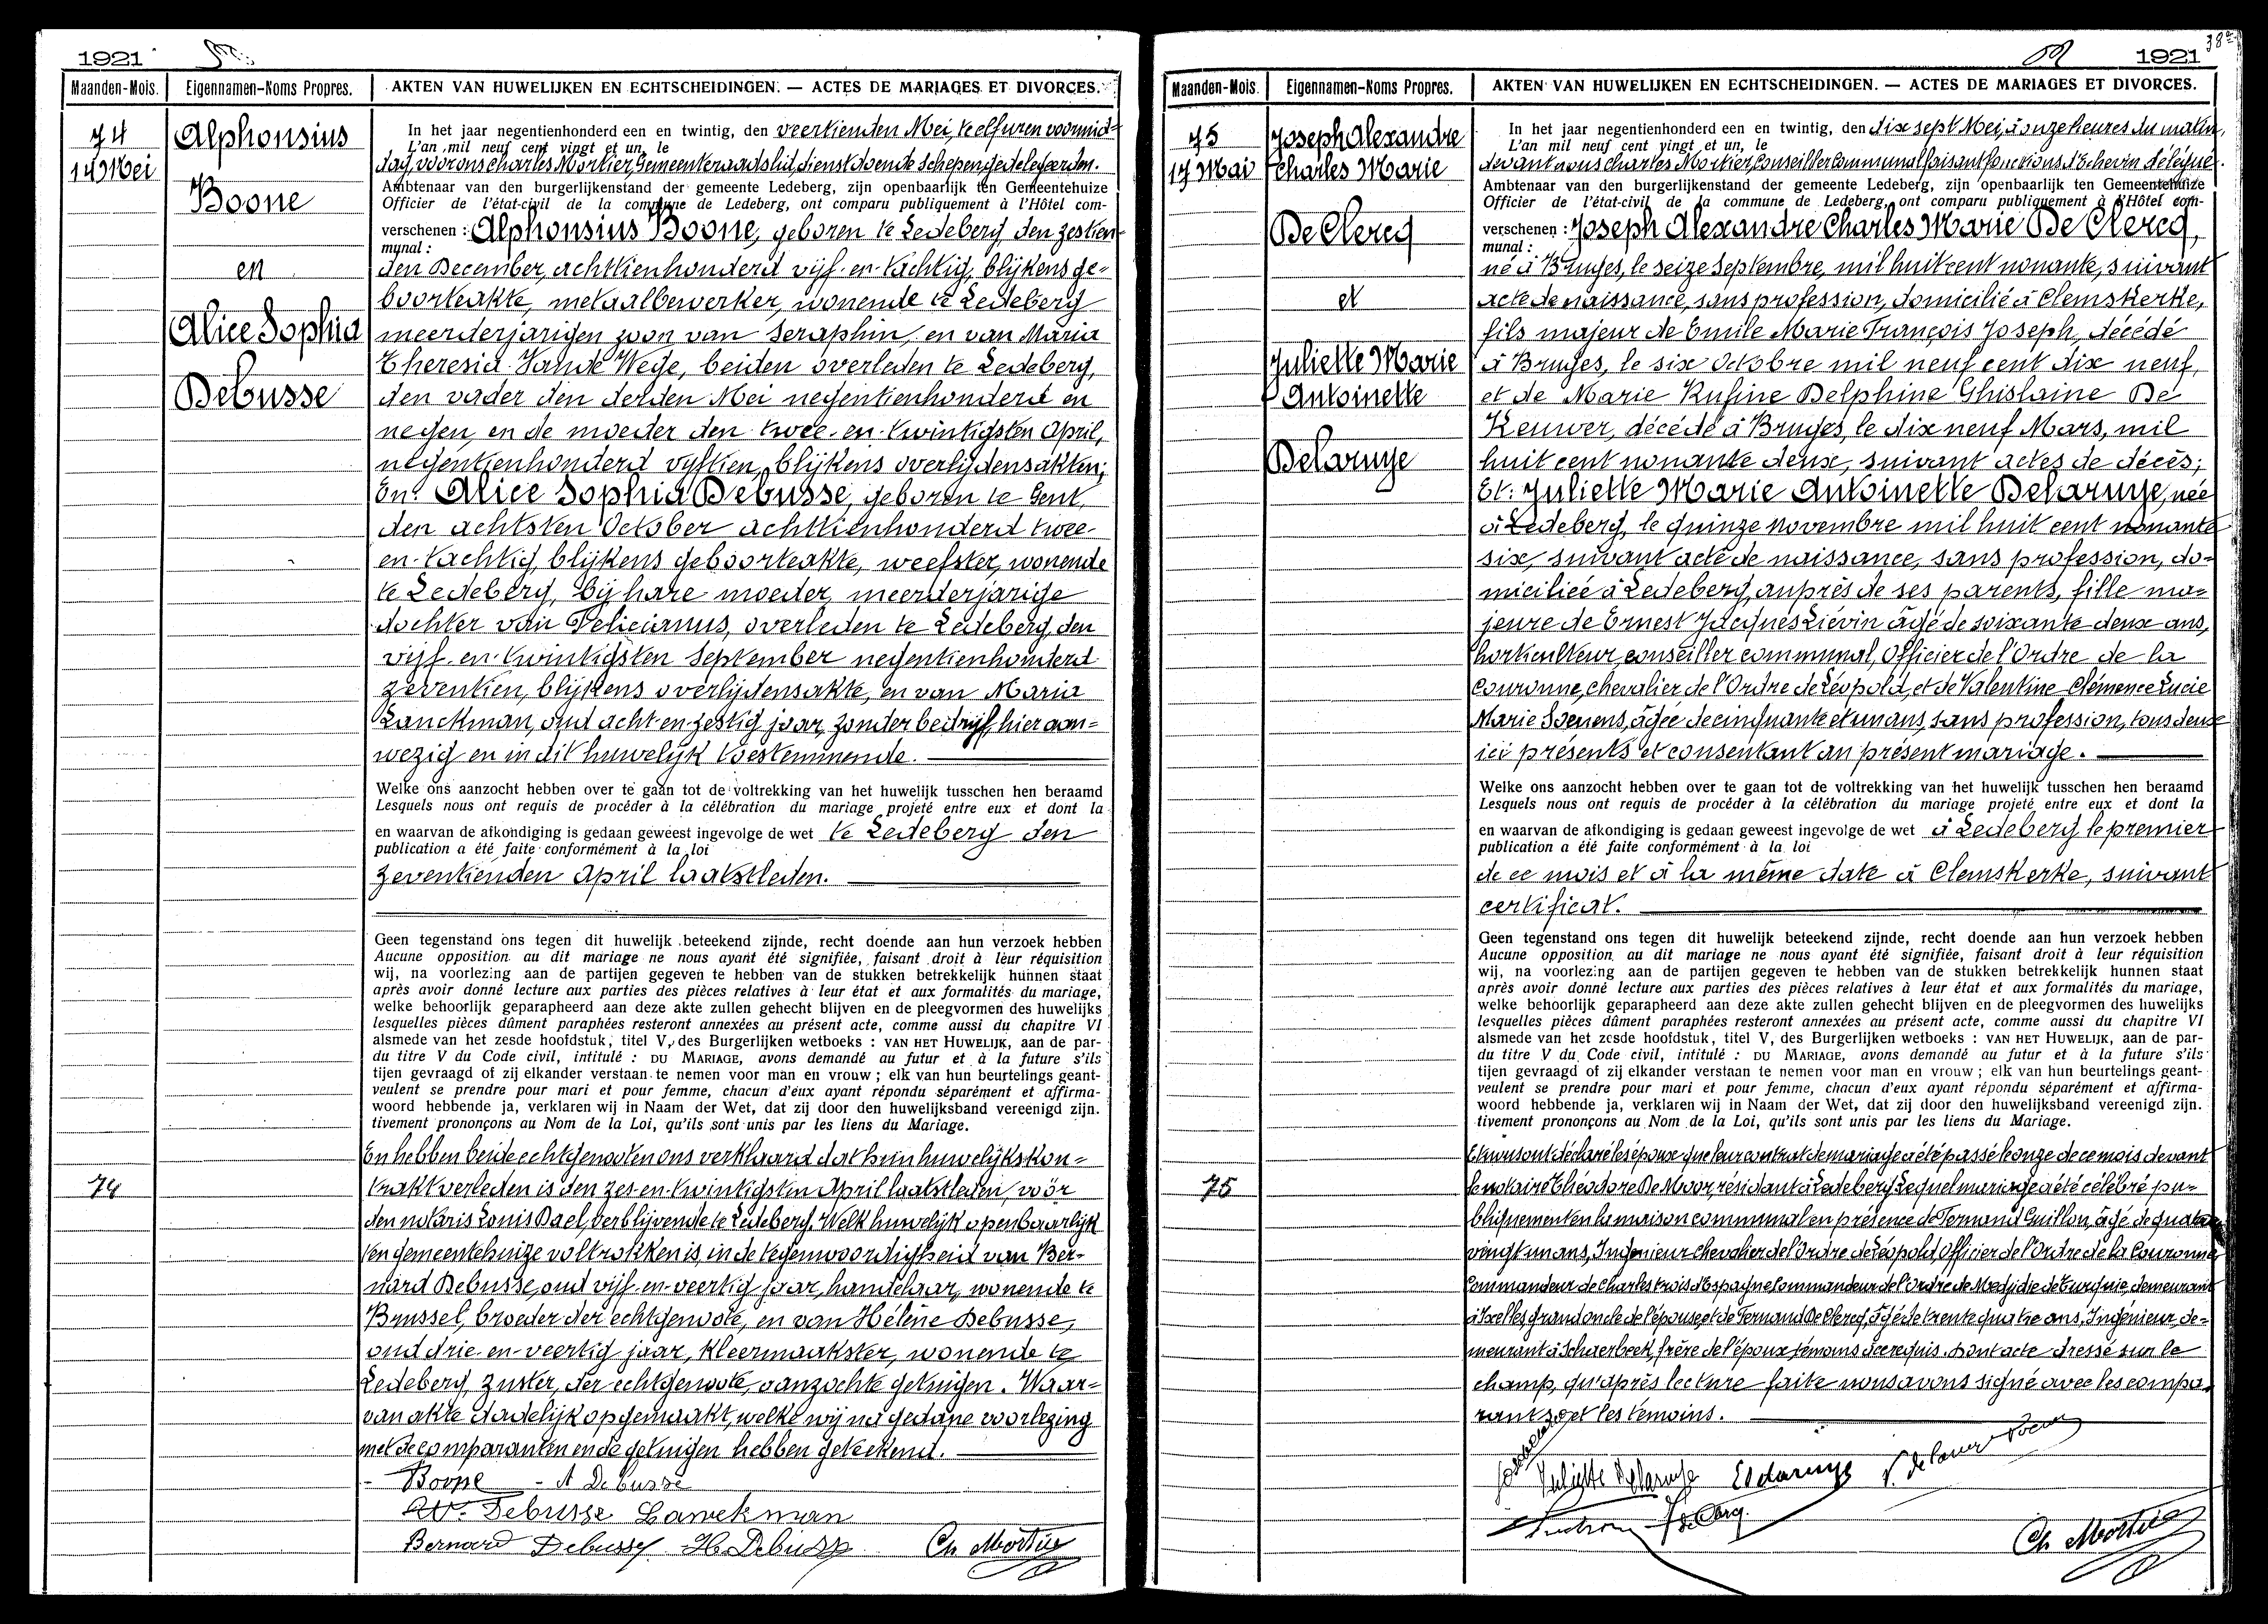 1921
Maanden-Mois. Eigennamen-Noms Propres. AKTEN VAN HUWELIJKEN EN ECHTSCHEIDINGEN. — ACTES DE MARIAGES ET DIVORCES.
74
14 Mei
Alphonsius
Boone
en
Alice Sophia
Debusse
74
In het jaar negentienhonderd een en twintig, den veertienden Mei, te elf uren voormid=
L'an mil neuf cent vingt et un, le
dag, voor ons Charles Mortier, Gemeenteraadslid, dienstdoende Schepen, gedelegeerden.
Ambtenaar van den burgerlijkenstand der gemeente Ledeberg, zijn openbaarlijk ten Gemeentehuize
Officier de l'état-civil de la commune de Ledeberg, ont comparu publiquement à l'Hôtel com-
verschenen : Alphonsius Boone, geboren te Ledeberg, den zestien
munal :
den December, achttienhonderd vijf-en-tachtig, blijkens ge=
boorteakte, metaalbewerker, wonende te Ledeberg
meerderjarigen zoon van Seraphin, en van Maria
Theresia Vande Wege, beiden overleden te Ledeberg,
den vader den derden Mei negentienhonderd en
negen, en de moeder den twee-en-twintigsten April,
negentienhonderd vyftien, blijkens overlijdensakten;
En: Alice Sophia Debusse, geboren te Gent,
den achtsten October achttienhonderd twee-
en-tachtig, blijkens geboorteakte, weefster, wonende
te Ledeberg, bij hare moeder, meerderjarige
dochter van Felicianus, overleden te Ledeberg, den
vijf-en-twintigsten September negentienhonderd
zeventien, blijkens overlijdensakte, en van Maria
Lanckman, oud acht-en-zestig jaar, zonder bedrijf, hier aan=
wezig en in dit huwelijk toestemmende.
Welke ons aanzocht hebben over te gaan tot de voltrekking van het huwelijk tusschen hen beraamd
Lesquels nous ont requis de procéder à la célébration du mariage projeté entre eux et dont la
en waarvan de afkondiging is gedaan geweest ingevolge de wet te Ledeberg den
publication a été faite conformément à la loi
zeventienden April laatstleden.
Geen tegenstand ons tegen dit huwelijk beteekend zijnde, recht doende aan hun verzoek hebben
Aucune opposition au dit mariage ne nous ayant été signifiée, faisant droit à leur réquisition
wij, na voorlezing aan de partijen gegeven te hebben van de stukken betrekkelijk hunnen staat
après avoir donné lecture aux parties des pièces relatives à leur état et aux formalités du mariage,
welke behoorlijk geparapheerd aan deze akte zullen gehecht blijven en de pleegvormen des huwelijks
lesquelles pièces dûment paraphées resteront annexées au présent acte, comme aussi du chapitre VI
alsmede van het zesde hoofdstuk, titel V, des Burgerlijken wetboeks : VAN HET HUWELIJK, aan de par-
du titre V du Code civil, intitulé : DU MARIAGE, avons demandé au futur et à la future s'ils
tijen gevraagd of zij elkander verstaan te nemen voor man en vrouw ; elk van hun beurtelings geant-
veulent se prendre pour mari et pour femme, chacun d'eux ayant répondu séparément et affirma-
woord hebbende ja, verklaren wij in Naam der Wet, dat zij door den huwelijksband vereenigd zijn.
tivement prononçons au Nom de la Loi, qu'ils sont unis par les liens du Mariage.
En hebben beide echtgenooten ons verklaard dat hun huwelijkskon=
trakt verleden is den zes-en-twintigsten April laatstleden, voor
den notaris Louis Dael, verblijvende te Ledeberg. Welk huwelijk openbaarlijk
ten gemeentehuize voltrokken is, in de tegenwoordigheid van Ber=
nard Debusse, oud vijf-en-veertig jaar, handelaar, wonende te
Brussel, broeder der echtgenoote, en van Hélène Debusse,
oud drie-en-veertig jaar, kleermaakster, wonende te
Ledeberg, zuster, der echtgenoote, aanzochte getuigen. Waar=
van akte dadelijk opgemaakt, welke wij na gedane voorlezing
met de comparanten en de getuigen hebben geteekend.
Boone - A Debusse
Debusse Lanckman
Bernard Debusse H. Debusse Ch Mortier
1921
38
Maanden-Mois. Eigennamen-Noms Propres. AKTEN VAN HUWELIJKEN EN ECHTSCHEIDINGEN. — ACTES DE MARIAGES ET DIVORCES.
75
17 Mai
Joseph Alexandre
Charles Marie
De Clercq
et
Juliette Marie
Antoinette
Delaruye
75
In het jaar negentienhonderd een en twintig, den dix sept Mei, à onze heures du matin,
L'an mil neuf cent vingt et un, le
devant nous Charles Mortier, Conseiller communal faisant fonctions d'Echevin délégué.
Ambtenaar van den burgerlijkenstand der gemeente Ledeberg, zijn openbaarlijk ten Gemeentehuize
Officier de l'état-civil de la commune de Ledeberg, ont comparu publiquement à l'Hôtel com-
verschenen : Joseph Alexandre Charles Marie De Clercq,
munal :
né à Bruges, le seize Septembre, mil huit cent nonante, suivant
acte de naissance, sans profession, domicilié à Clemskerke,
fils majeur de Emile Marie François Joseph, décédé
à Bruges, le six Octobre mil neuf cent dix neuf,
et de Marie Rufine Delphine Ghislaine De
Keuwer, décédé à Bruges, le dix neuf Mars, mil
huit cent nonante deux, suivant actes de décès;
Et: Juliette Marie Antoinette Delaruye, née
à Ledeberg, le quinze novembre mil huit cent nonante
six, suivant acte de naissance, sans profession, do=
miciliée à Ledeberg, auprès de ses parents, fille ma=
jeure de Ernest Jacques Liévin âgé de soixante deux ans,
horticulteur, conseiller communal, Officier de l'Ordre de la
Couronne, chevalier de l'Ordre de Léopold, et de Valentine Clémence Lucie
Marie Soenens, âgée de cinquante et un ans, sans profession, tous deux
ici présents et consentant au présent mariage.
Welke ons aanzocht hebben over te gaan tot de voltrekking van het huwelijk tusschen hen beraamd
Lesquels nous ont requis de procéder à la célébration du mariage projeté entre eux et dont la
en waarvan de afkondiging is gedaan geweest ingevolge de wet à Ledeberg, le premier
publication a été faite conformément à la loi
de ce mois et à la même date à Clemskerke, suivant
certificat.
Geen tegenstand ons tegen dit huwelijk beteekend zijnde, recht doende aan hun verzoek hebben
Aucune opposition au dit mariage ne nous ayant été signifiée, faisant droit à leur réquisition
wij, na voorlezing aan de partijen gegeven te hebben van de stukken betrekkelijk hunnen staat
après avoir donné lecture aux parties des pièces relatives à leur état et aux formalités du mariage,
welke behoorlijk geparapheerd aan deze akte zullen gehecht blijven en de pleegvormen des huwelijks
lesquelles pièces dûment paraphées resteront annexées au présent acte, comme aussi du chapitre VI
alsmede van het zesde hoofdstuk, titel V, des Burgerlijken wetboeks : VAN HET HUWELIJK, aan de par-
du titre V du Code civil, intitulé : DU MARIAGE, avons demandé au futur et à la future s'ils
tijen gevraagd of zij elkander verstaan te nemen voor man en vrouw ; elk van hun beurtelings geant-
veulent se prendre pour mari et pour femme, chacun d'eux ayant répondu séparément et affirma-
woord hebbende ja, verklaren wij in Naam der Wet, dat zij door den huwelijksband vereenigd zijn.
tivement prononçons au Nom de la Loi, qu'ils sont unis par les liens du Mariage.
Et nous ont déclaré les époux que leur contrat de mariage a été passé le onze de ce mois devant
le notaire Théodore De Moor, résidant à Ledeberg. Lequel mariage a été célébré pu=
bliquement en la maison communal en présence de Fernand Guillon, âgé de quatre
vingt un ans, Ingénieur chevalier de l'Ordre de Léopold, Officier de l'Ordre de la Couronne
Commandeur de Charles trois d'Espagne Commandeur de l'Ordre de Medjidie de Turquie, demeurant
à Ixelles, grand oncle de l'épouse, et de Fernand De Clercq, âgé de trente quatre ans, Ingénieur, de=
meurant à Schaerbeek, frère de l'époux témoins à ce requis. Dont acte dressé sur le
champ, qu'après lecture faite nous avons signé avec les compa=
rants et les témoins.
Juliette Delaruye Eldaruye V. delaruye Soenens
F de Clercq.
Ch Mortier